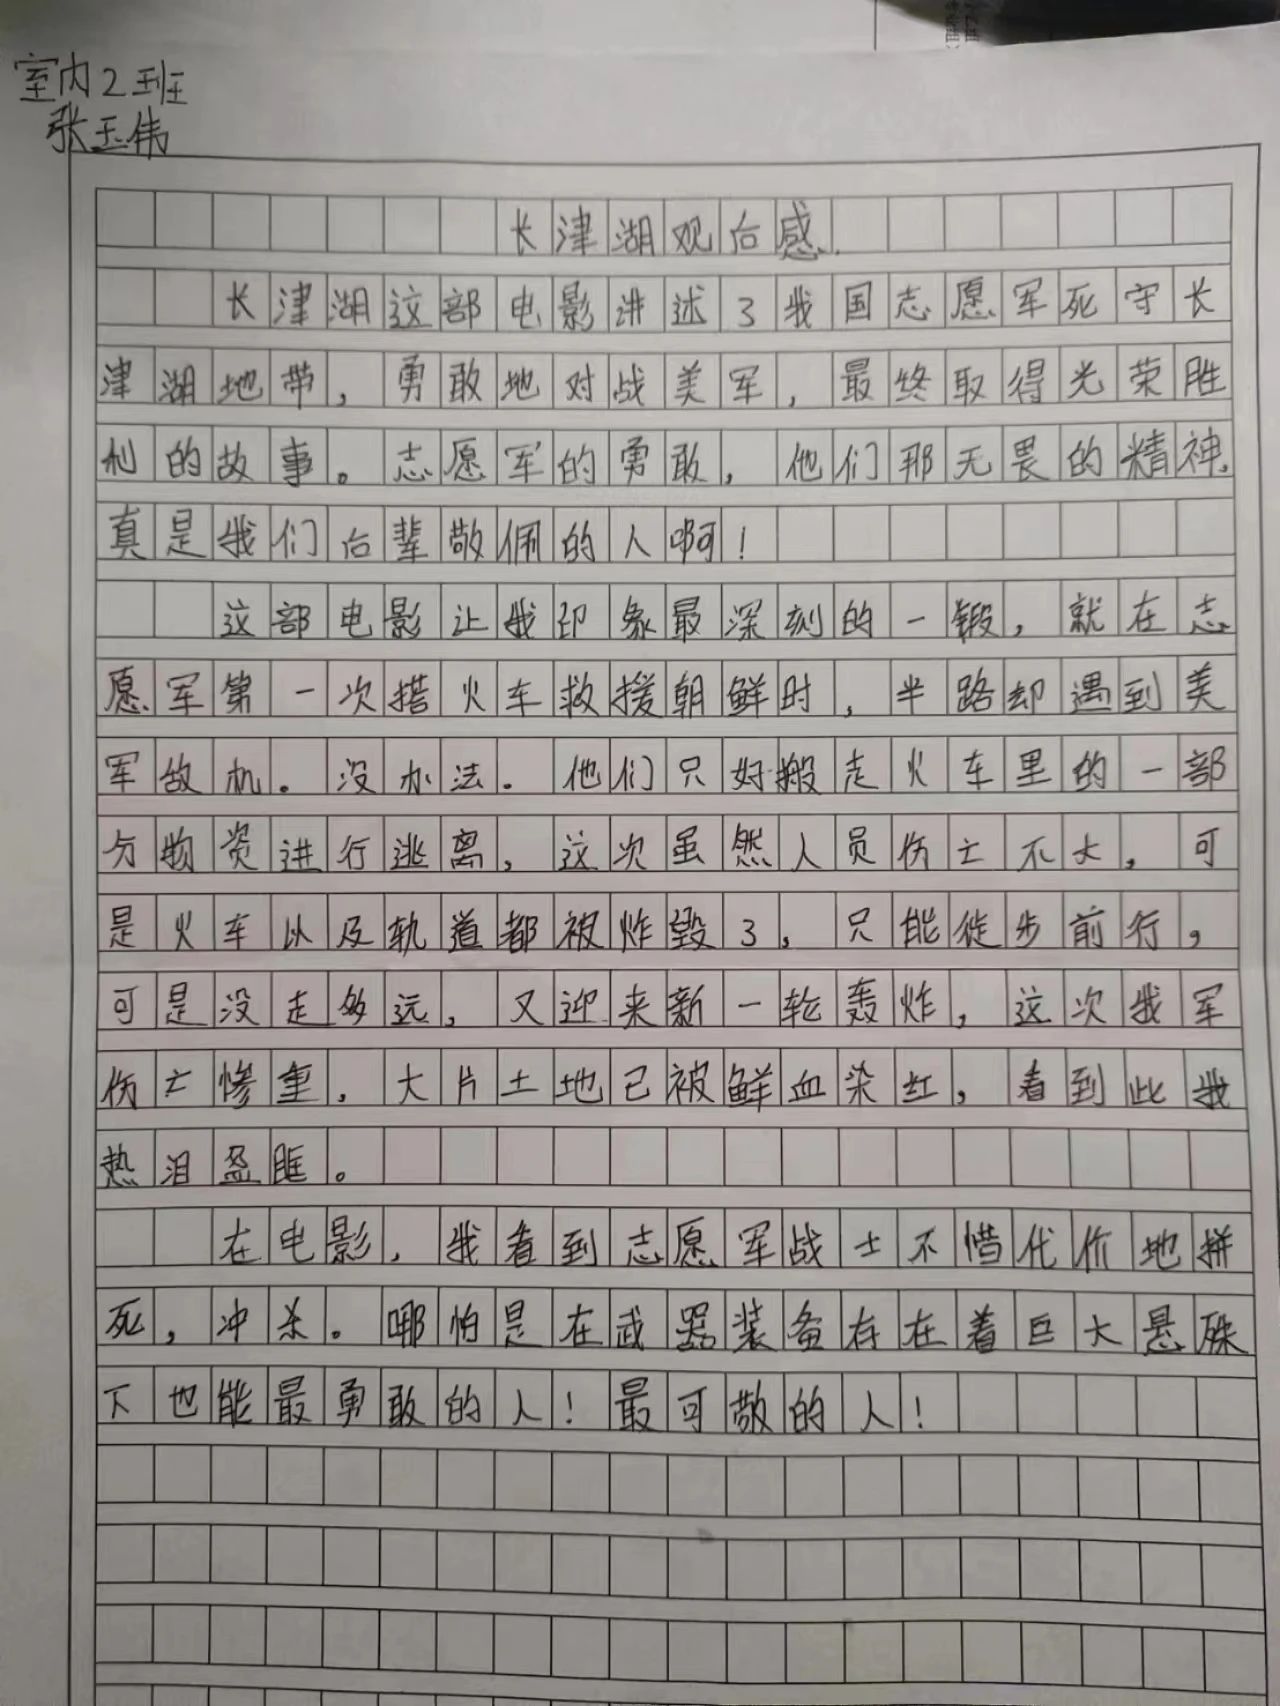 室内2班
张玉伟
长津湖观后感.
长津湖这部电影讲述了我国志愿军死守长
津湖地带，勇敢地对战美军，最终取得光荣胜
利的故事。志愿军的勇敢，他们那无畏的精神，
真是我们后辈敬佩的人啊！
这部电影让我印象最深刻的一锻，就在志
愿军第一次搭火车救援朝鲜时，半路却遇到美
军敌机。没办法．他们只好搬走火车里的一部
分物资进行逃离，这次虽然人员伤亡不大，可
是火车以及轨道都被炸毁了，只能徒步前行，
可是没走多远，又迎来新一轮轰炸，这次我军
伤亡惨重，大片土地已被鲜血染红，看到此我
热泪盈眶。
在电影，我看到志愿军战士不惜代价地拼
死，冲杀。哪怕是在武器装备存在着巨大悬殊
下也能最勇敢的人！最可敬的人！